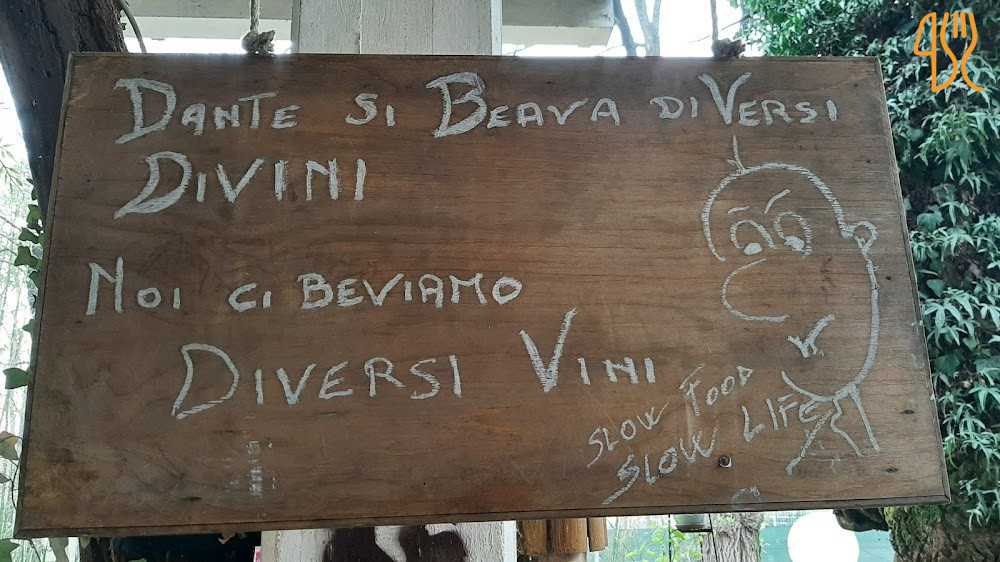 DANTE SI BEAVA DI VERSI
DIVINI
NOI CI BEVIAMO
DIVERSI VINI
SLOW FOOD
SLOW LIFE